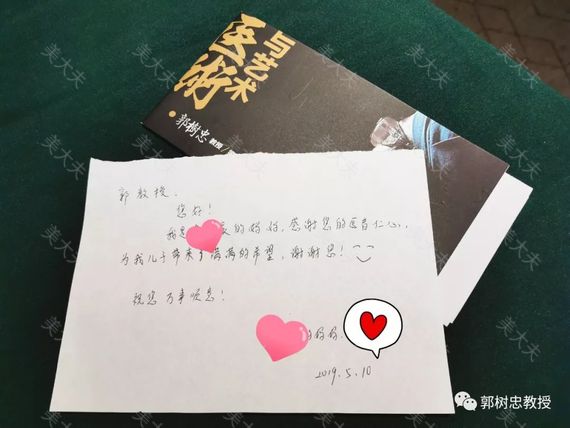 医術
与艺术
郭樹忠 教授
郭教授.
您好!
我是 的妈妈.感谢您的医者仁心,
为我儿子带来了满满的希望,谢谢您!
祝您 万事顺意!
妈妈.
2019.5.10
郭树忠教授
美大夫